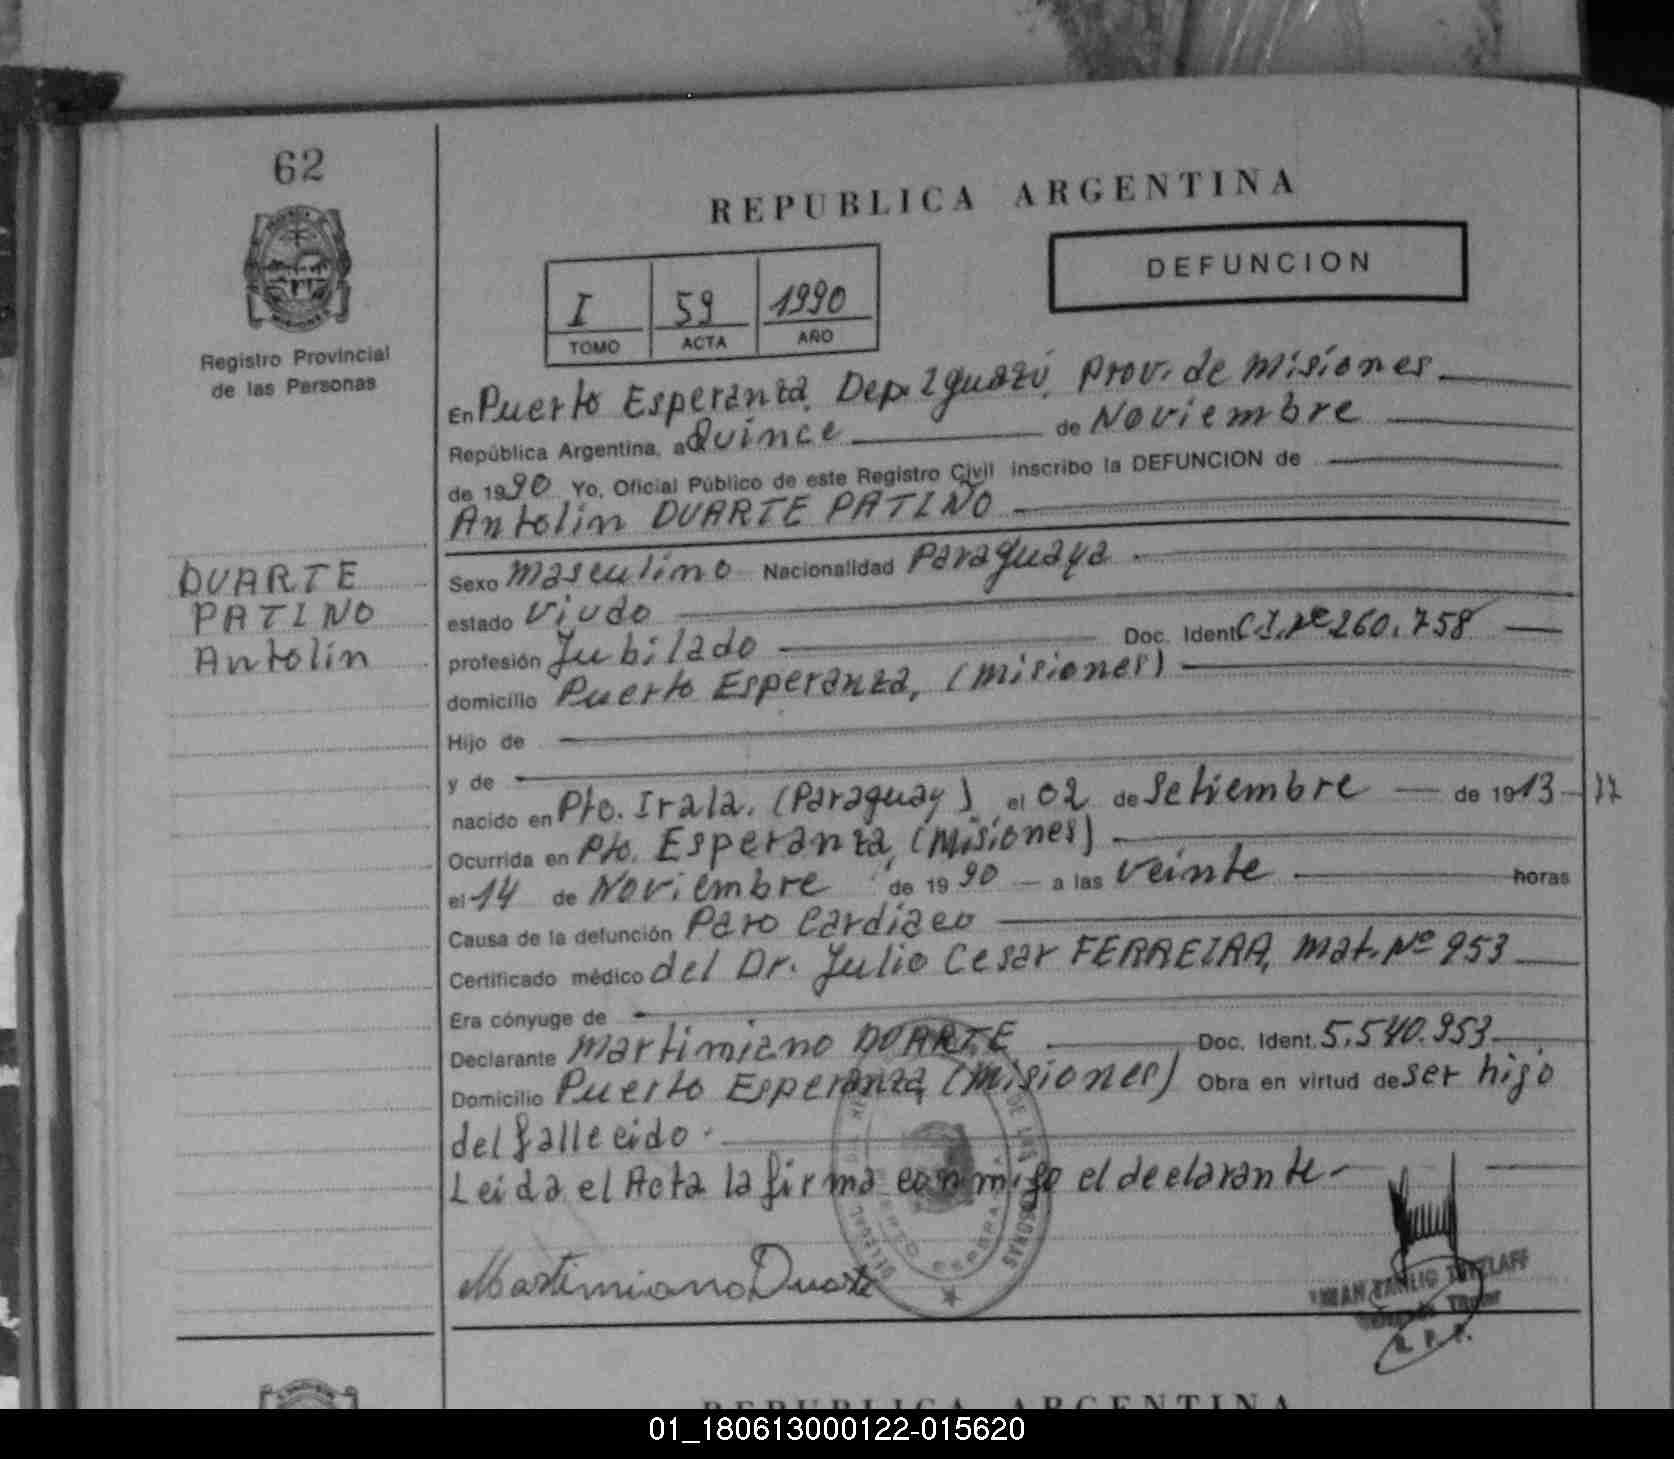 62
REPUBLICA ARGENTINA
DEFUNCION
I 59 1990
TOMO ACTA AÑO
Registro Provincial
de las Personas
MISIONES
En Puerto Esperanza, Dep. Iguazú, Prov. de Misiones
República Argentina, a Quince de Noviembre
de 1990 Yo, Oficial Público de este Registro Civil inscribo la DEFUNCION de
Antolin DUARTE PATIÑO
DUARTE
PATIÑO
Antolin
Sexo Masculino Nacionalidad Paraguaya
estado Viudo
profesión Jubilado Doc. Ident. C.I. Nº 260.758
domicilio Puerto Esperanza, (Misiones)
Hijo de
y de
nacido en Pto. Irala, (Paraguay) el 02 de Setiembre de 1913 77
Ocurrida en Pto. Esperanza, (Misiones)
el 14 de Noviembre de 1990 a las Veinte horas
Causa de la defunción Paro Cardiaco
Certificado médico del Dr. Julio Cesar FERREIRA, Mat. Nº 953
Era cónyuge de
Declarante Martimiano DUARTE Doc. Ident. 5.540.953
Domicilio Puerto Esperanza, (Misiones) Obra en virtud de ser hijo
del fallecido.
Leida el Acta la firma conmigo el declarante
Martimiano Duarte
R. P. P.
REPUBLICA ARGENTINA
01_180613000122-015620